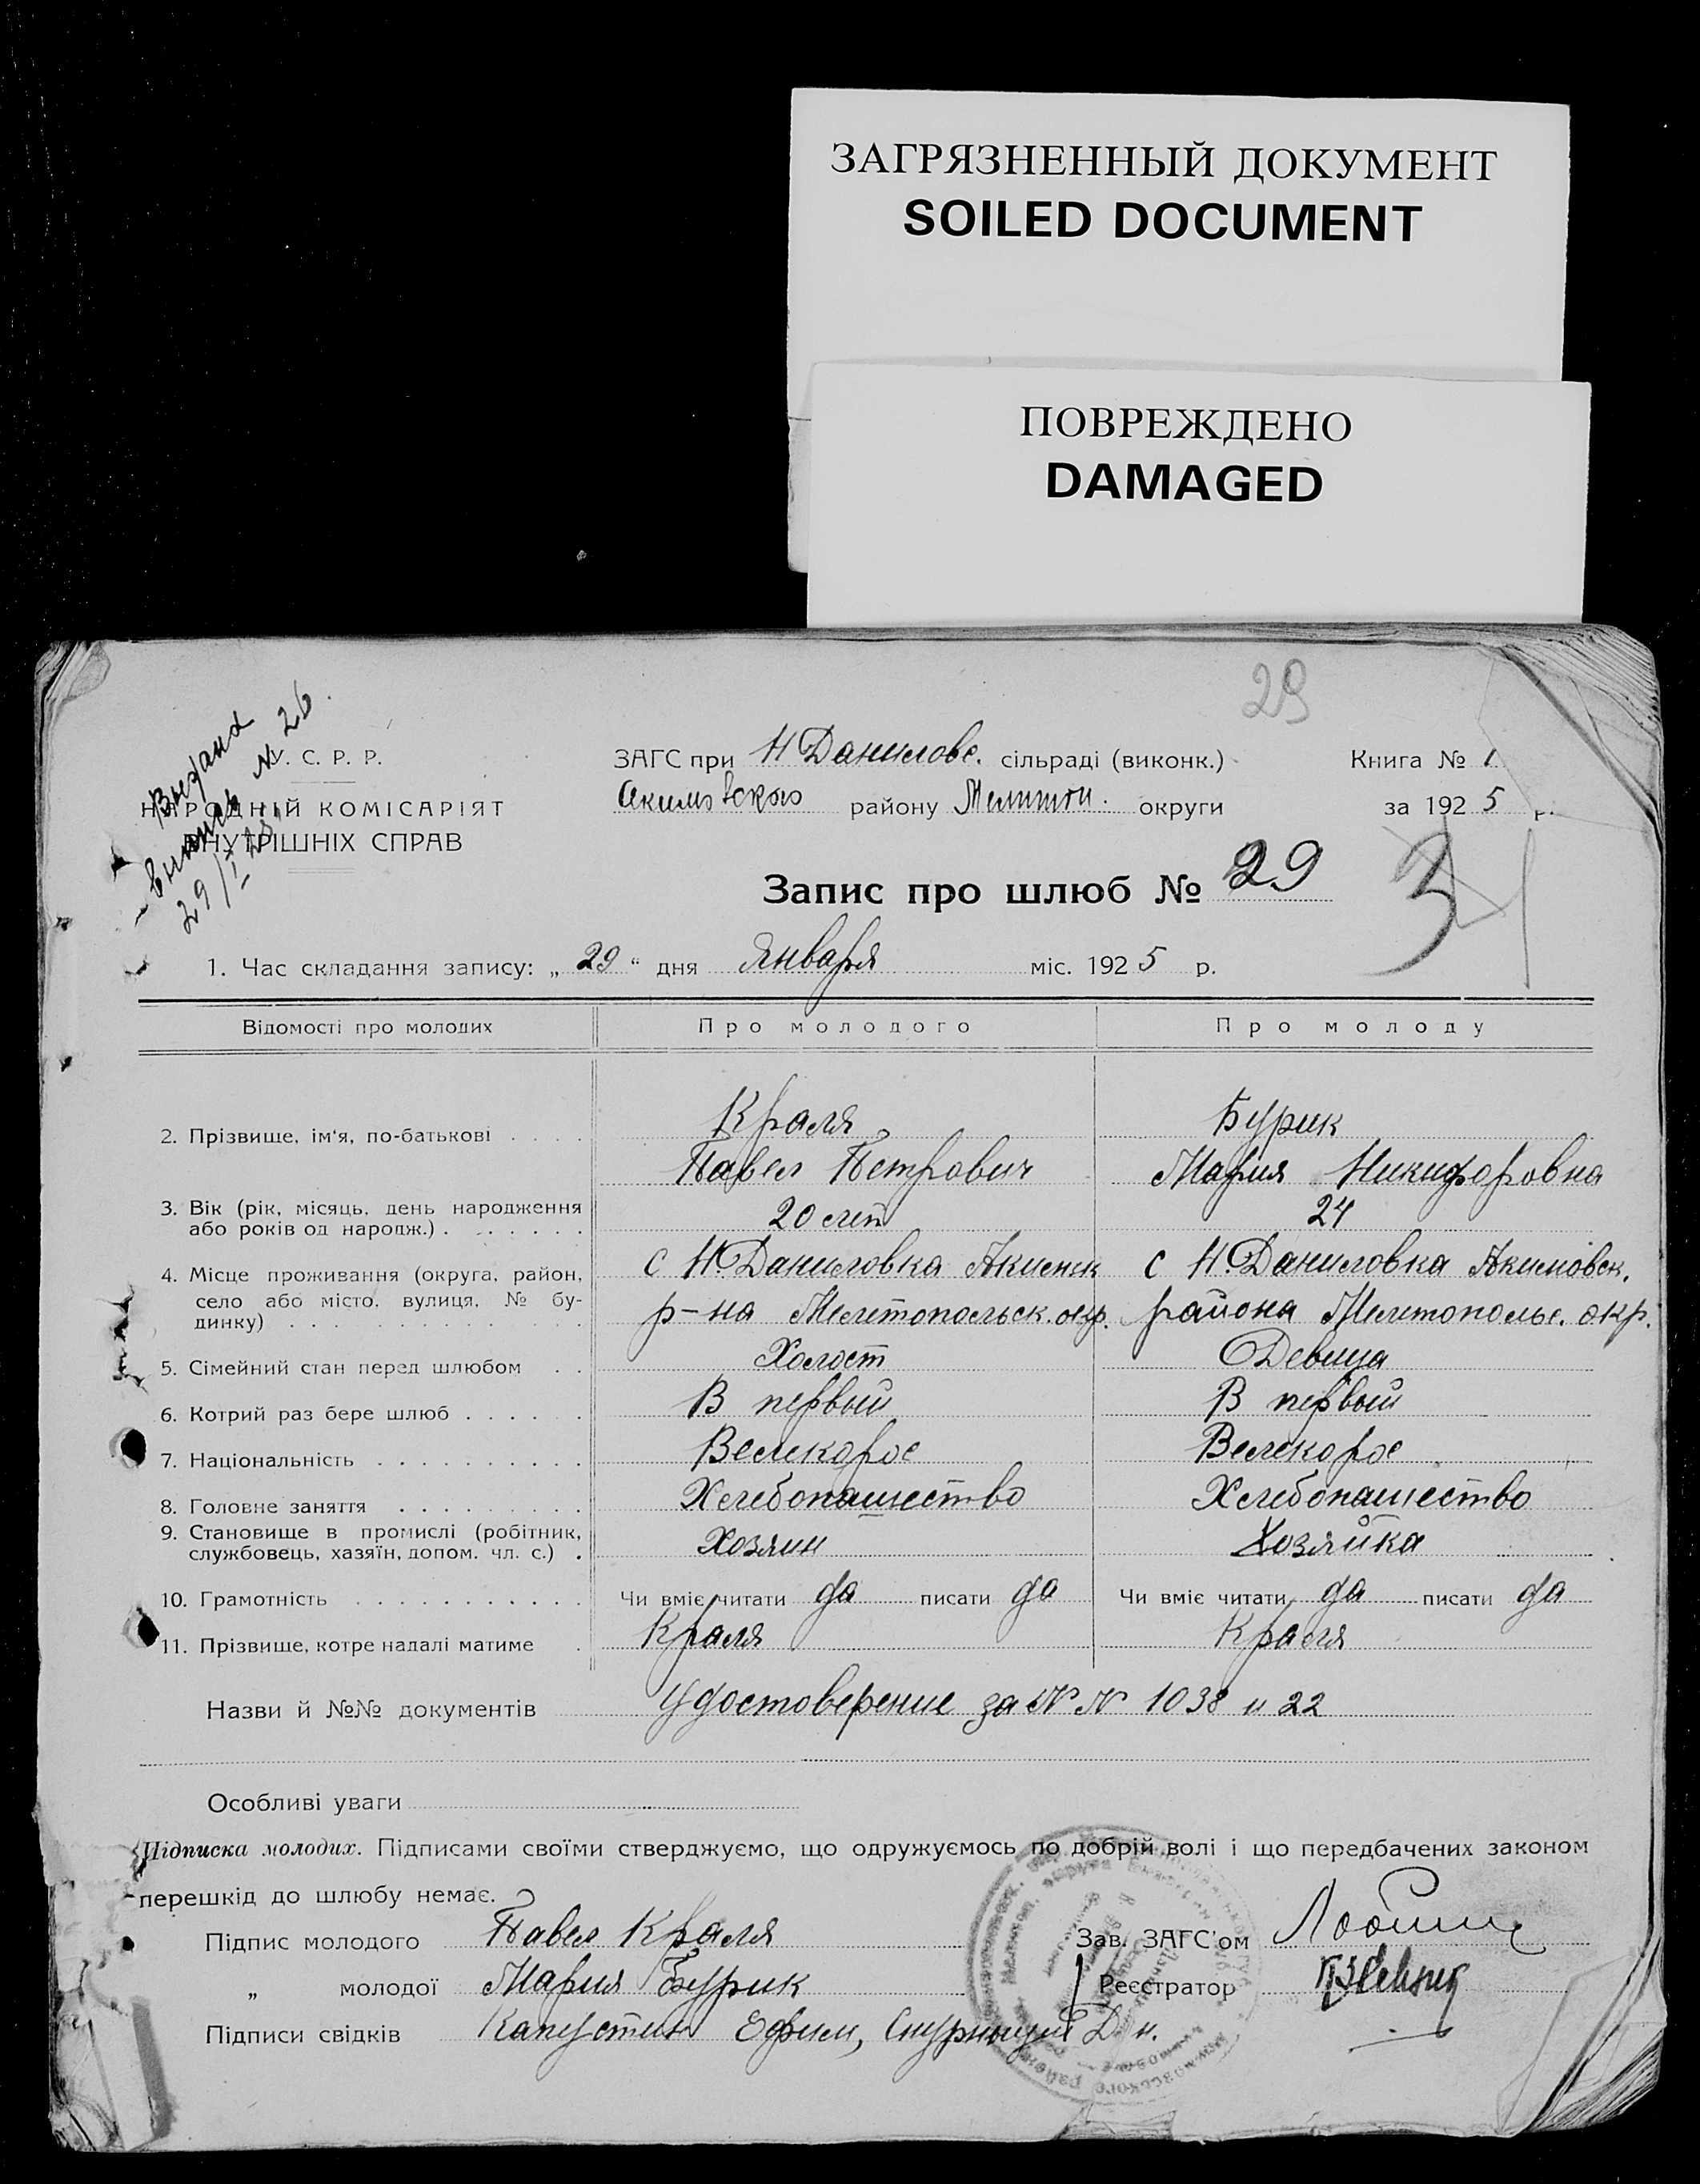 ЗАГРЯЗНЕННЫЙ ДОКУМЕНТ
SOILED DOCUMENT
ПОВРЕЖДЕНО
DAMAGED
29
Выдана
выпись № 26.
29/I 25.
У. С. Р. Р.
НАРОДНІЙ КОМІСАРІЯТ
ВНУТРІШНІХ СПРАВ
ЗАГС при Н Данилове. сільраді (виконк.)
Акимовского району Мелитоп. округи
Книга № 1
за 1925 р.
Запис про шлюб № 29
1. Час складання запису: „ 29 “ дня Января міс. 1925 р.
Відомості про молодих Про молодого Про молоду
2. Прізвище, ім'я, по-батькові . . . . Краля Бурик
Павел Петрович Мария Никифоровна
3. Вік (рік, місяць, день народження
або років од народж.) . . . . . . . 20 лет 24
4. Місце проживання (округа, район, с Н. Даниловка Акимск с Н. Даниловка Акимовск.
село або місто, вулиця, № бу-
динку) . . . . . . . . . . р-на Мелитопольск. окр. района Мелитопольс. окр.
5. Сімейний стан перед шлюбом . . Холост Девица
6. Котрий раз бере шлюб . . . . . . В первый В первый
7. Національність . . . . . . . . . . Великорос Великорос
8. Головне заняття . . . . . . . . . Хлебопашество Хлебопашество
9. Становище в промислі (робітник,
службовець, хазяїн, допом. чл. с.) . Хозяин Хозяйка
10. Грамотність . . . . . . . . . . . Чи вміє читати да писати да Чи вміє читати да писати да
11. Прізвище, котре надалі матиме . Краля Краля
Назви й №№ документів удостоверение за № № 1038 и 22
Особливі уваги
Підписка молодих. Підписами своїми стверджуємо, що одружуємось по добрій волі і що передбачених законом
перешкід до шлюбу немає.
Підпис молодого Павел Краля Зав. ЗАГС'ом
„ молодої Мария Бурик Реєстратор
Підписи свідків Капустин Ефим,